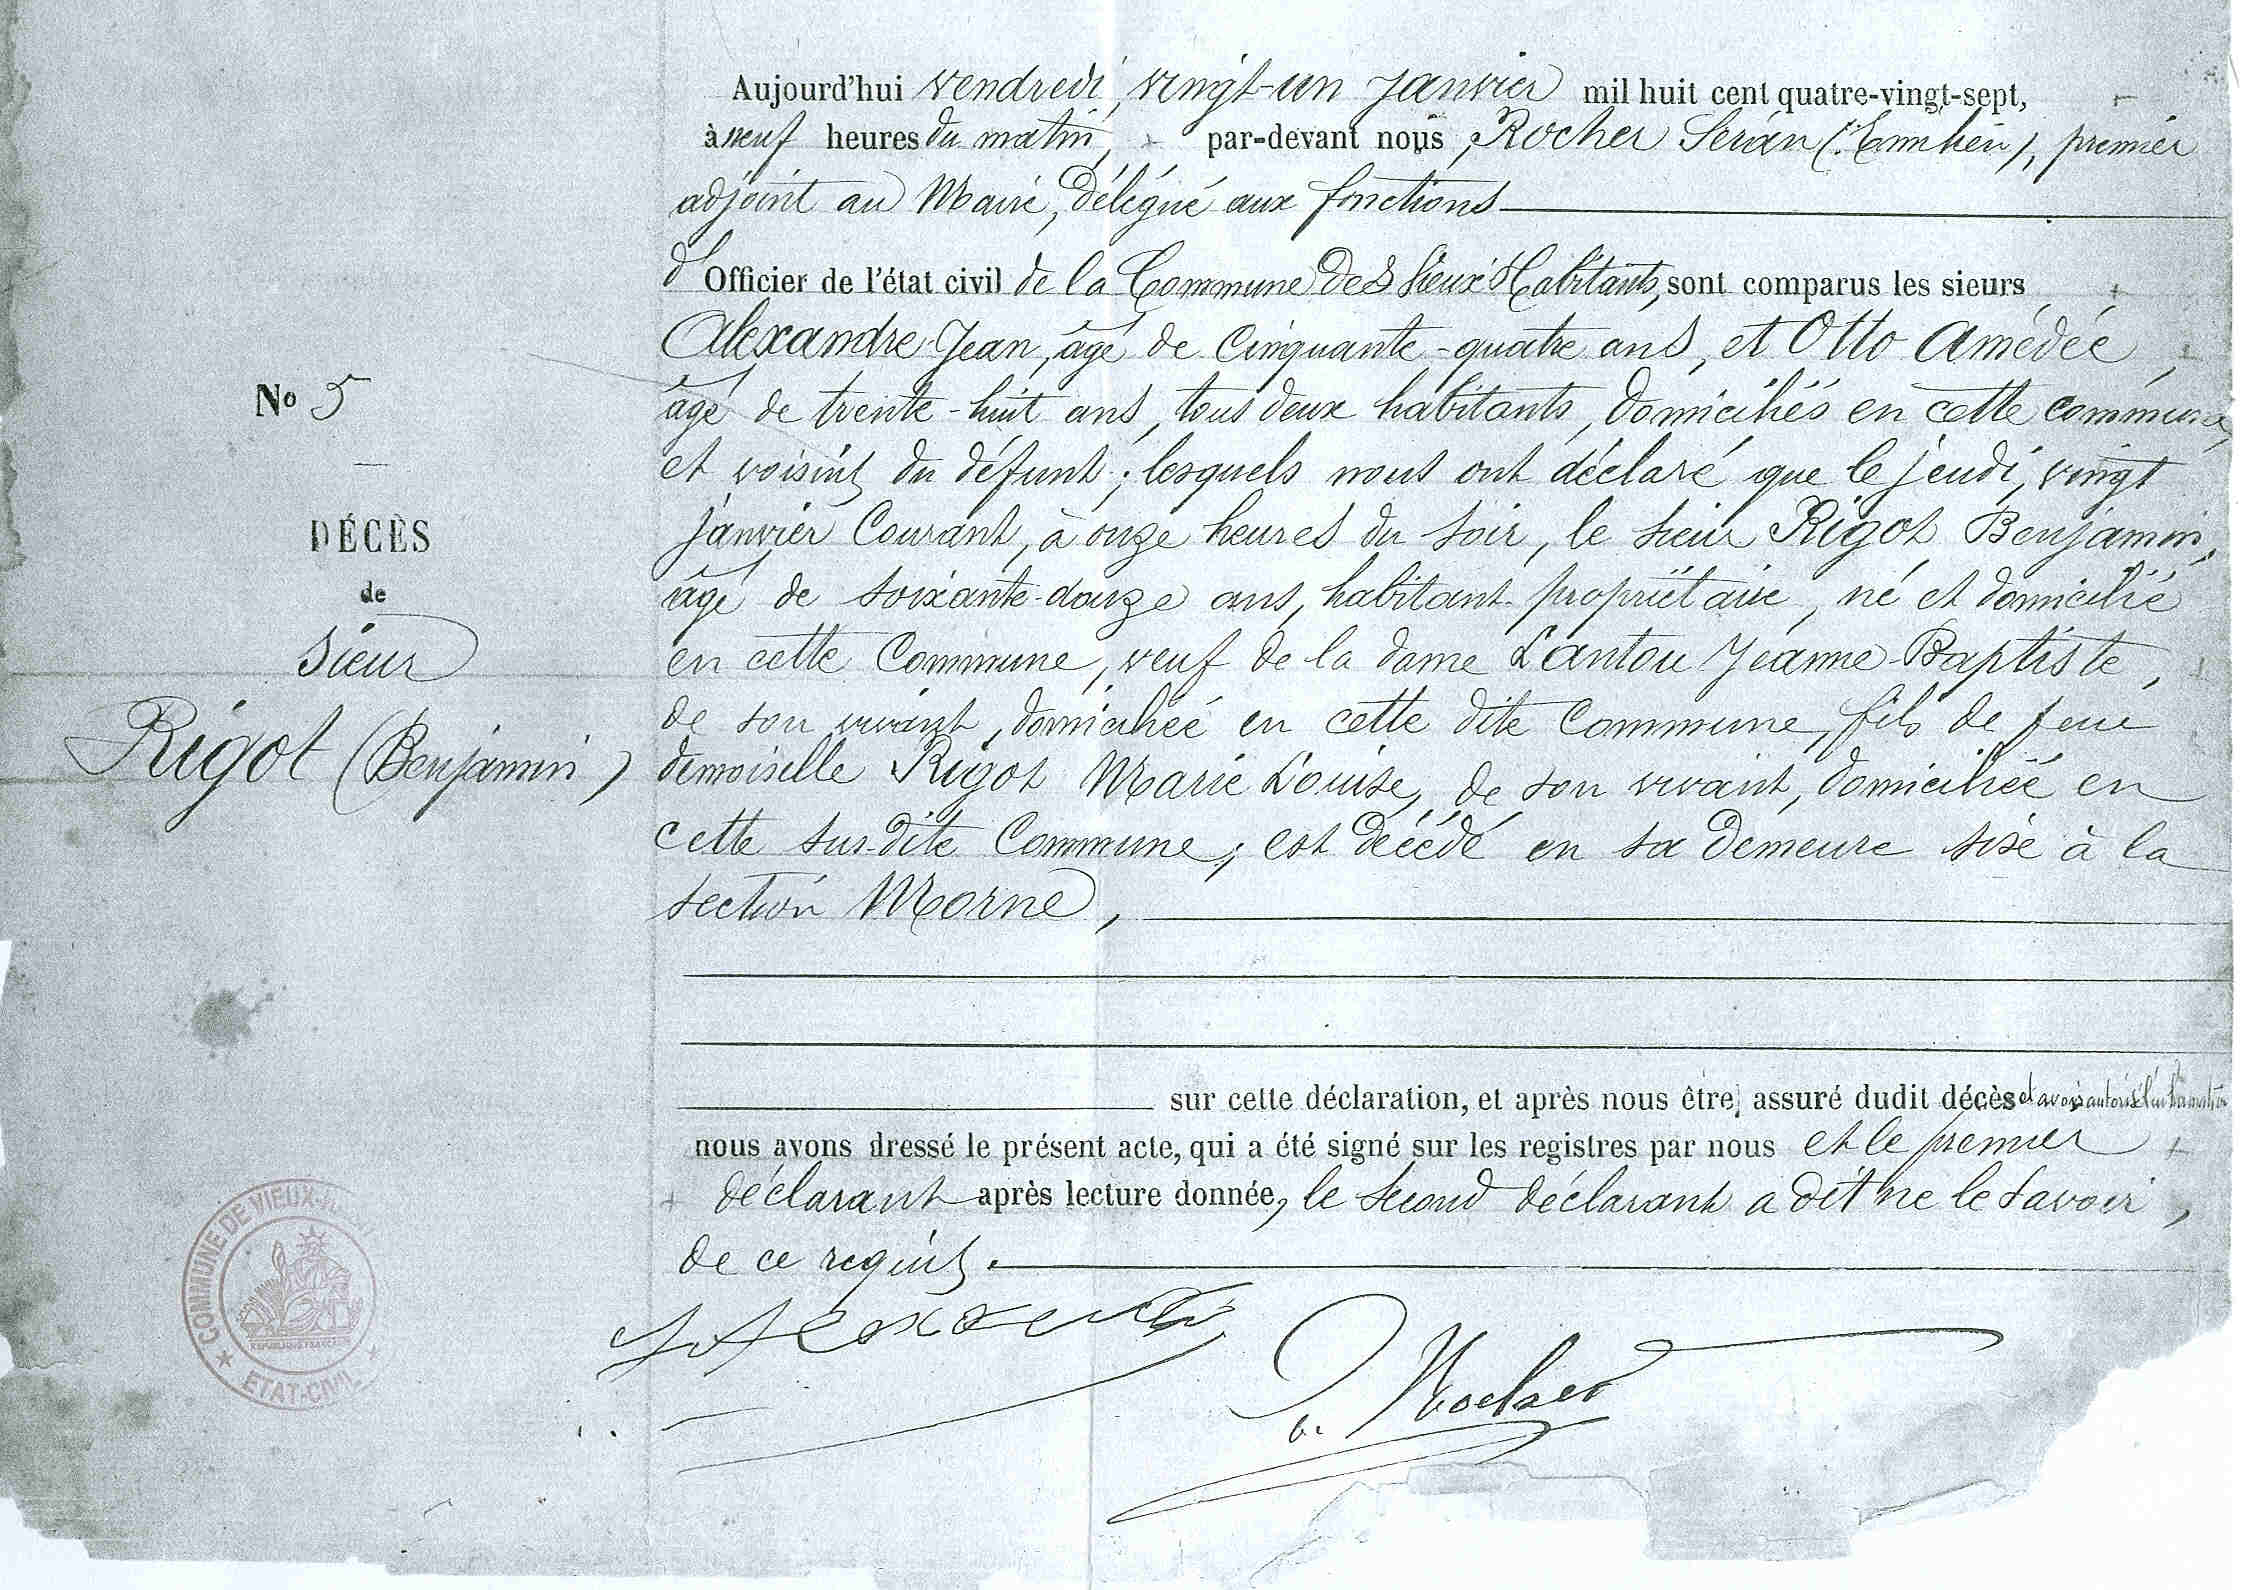 Aujourd'hui vendredi, vingt-un janvier mil huit cent quatre-vingt-sept,
à neuf heures du matin, par-devant nous, Rocher Sérian, premier
adjoint au Maire, délégué aux fonctions
d'Officier de l'état civil de la Commune des Vieux-Habitants, sont comparus les sieurs
Alexandre Jean, âgé de Cinquante-quatre ans, et Otto Amédée,
âgé de trente-huit ans, tous deux habitants, domiciliés en cette commune,
et voisins du défunt; lesquels nous ont déclaré que le jeudi, vingt
janvier Courant, à onze heures du soir, le sieur Rigot Benjamin,
âgé de soixante-douze ans, habitant-propriétaire, né et domicilié
en cette Commune, veuf de la dame Lantou Jeanne-Baptiste,
de son vivant, domiciliée en cette dite Commune, fils de feue
demoiselle Rigot Marie Louise, de son vivant, domiciliée en
cette sus-dite Commune; est décédé en sa demeure sise à la
section Morne,
sur cette déclaration, et après nous être assuré dudit décès et avoir autorisé l'inhumation
nous avons dressé le présent acte, qui a été signé sur les registres par nous et le premier
déclarant après lecture donnée, le second déclarant a dit ne le savoir,
de ce requis.
Rocher
No 5
DÉCÈS
de
Sieur
Rigot (Benjamin)
COMMUNE DE VIEUX-
REPUBLIQUE FRANÇAISE
ETAT-CIVIL